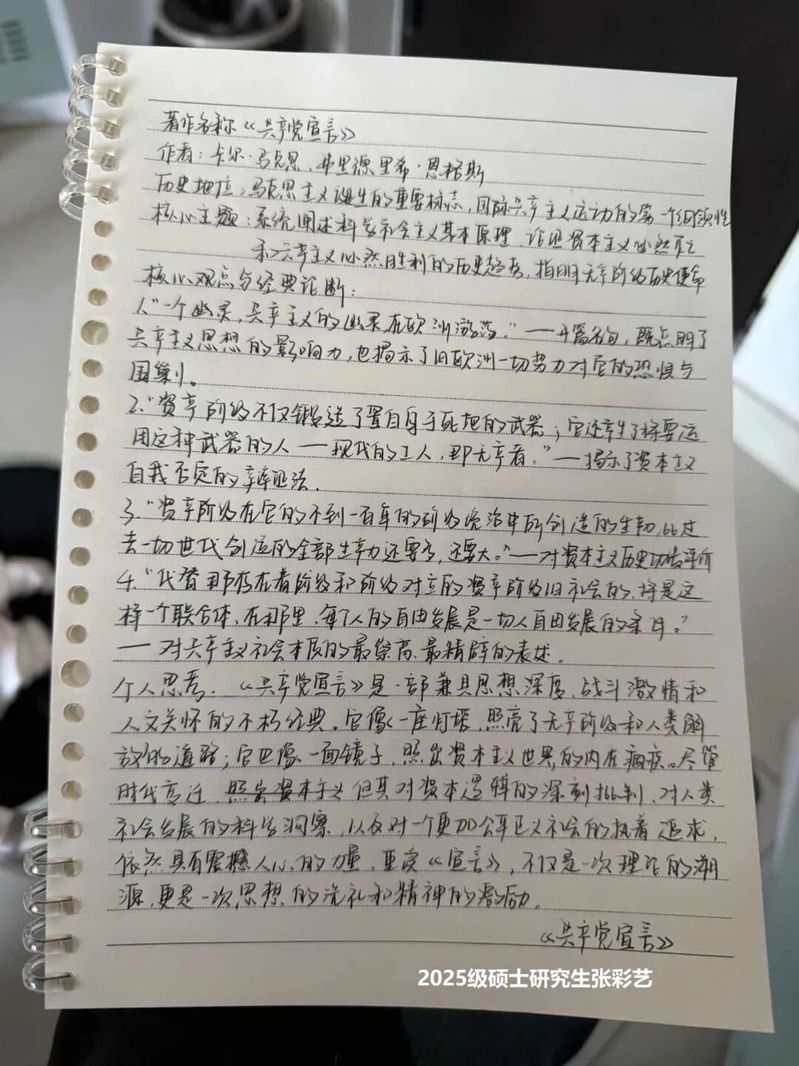 著作名称《共产党宣言》
作者：卡尔·马克思、弗里德里希·恩格斯
历史地位：马克思主义诞生的重要标志，国际共产主义运动的第一个纲领性
核心主题：系统阐述科学社会主义基本原理，论证资本主义必然灭亡
和共产主义必然胜利的历史趋势，指明无产阶级历史使命
核心观点与经典论断：
1."一个幽灵，共产主义的幽灵在欧洲游荡。"——开篇名句，既点明了
共产主义思想的影响力，也揭示了旧欧洲一切势力对它的恐惧与
围剿。
2."资产阶级不仅锻造了置自身于死地的武器；它还产生了将要运
用这种武器的人——现代的工人，即无产者。"——揭示了资本主义
自我否定的辩证法。
3."资产阶级在它的不到一百年的阶级统治中所创造的生产力，比过
去一切世代创造的全部生产力还要多，还要大。"——对资本主义历史功绩评价
4."代替那存在着阶级和阶级对立的资产阶级旧社会的，将是这
样一个联合体，在那里，每个人的自由发展是一切人自由发展的条件。"
——对共产主义社会本质的最崇高、最精辟的表述。
个人思考：《共产党宣言》是一部兼具思想深度、战斗激情和
人文关怀的不朽经典。它像一座灯塔，照亮了无产阶级和人类解
放的道路；它也像一面镜子，照出资本主义世界的内在痼疾。尽管
时代变迁，照出资本主义 但其对资本逻辑的深刻批判、对人类
社会发展的科学洞察，以及对一个更加公平正义社会的执着追求，
依然具有震撼人心的力量，重读《宣言》，不仅是一次理论的溯
源，更是一次思想的洗礼和精神的激励。
《共产党宣言》
2025级硕士研究生张彩艺